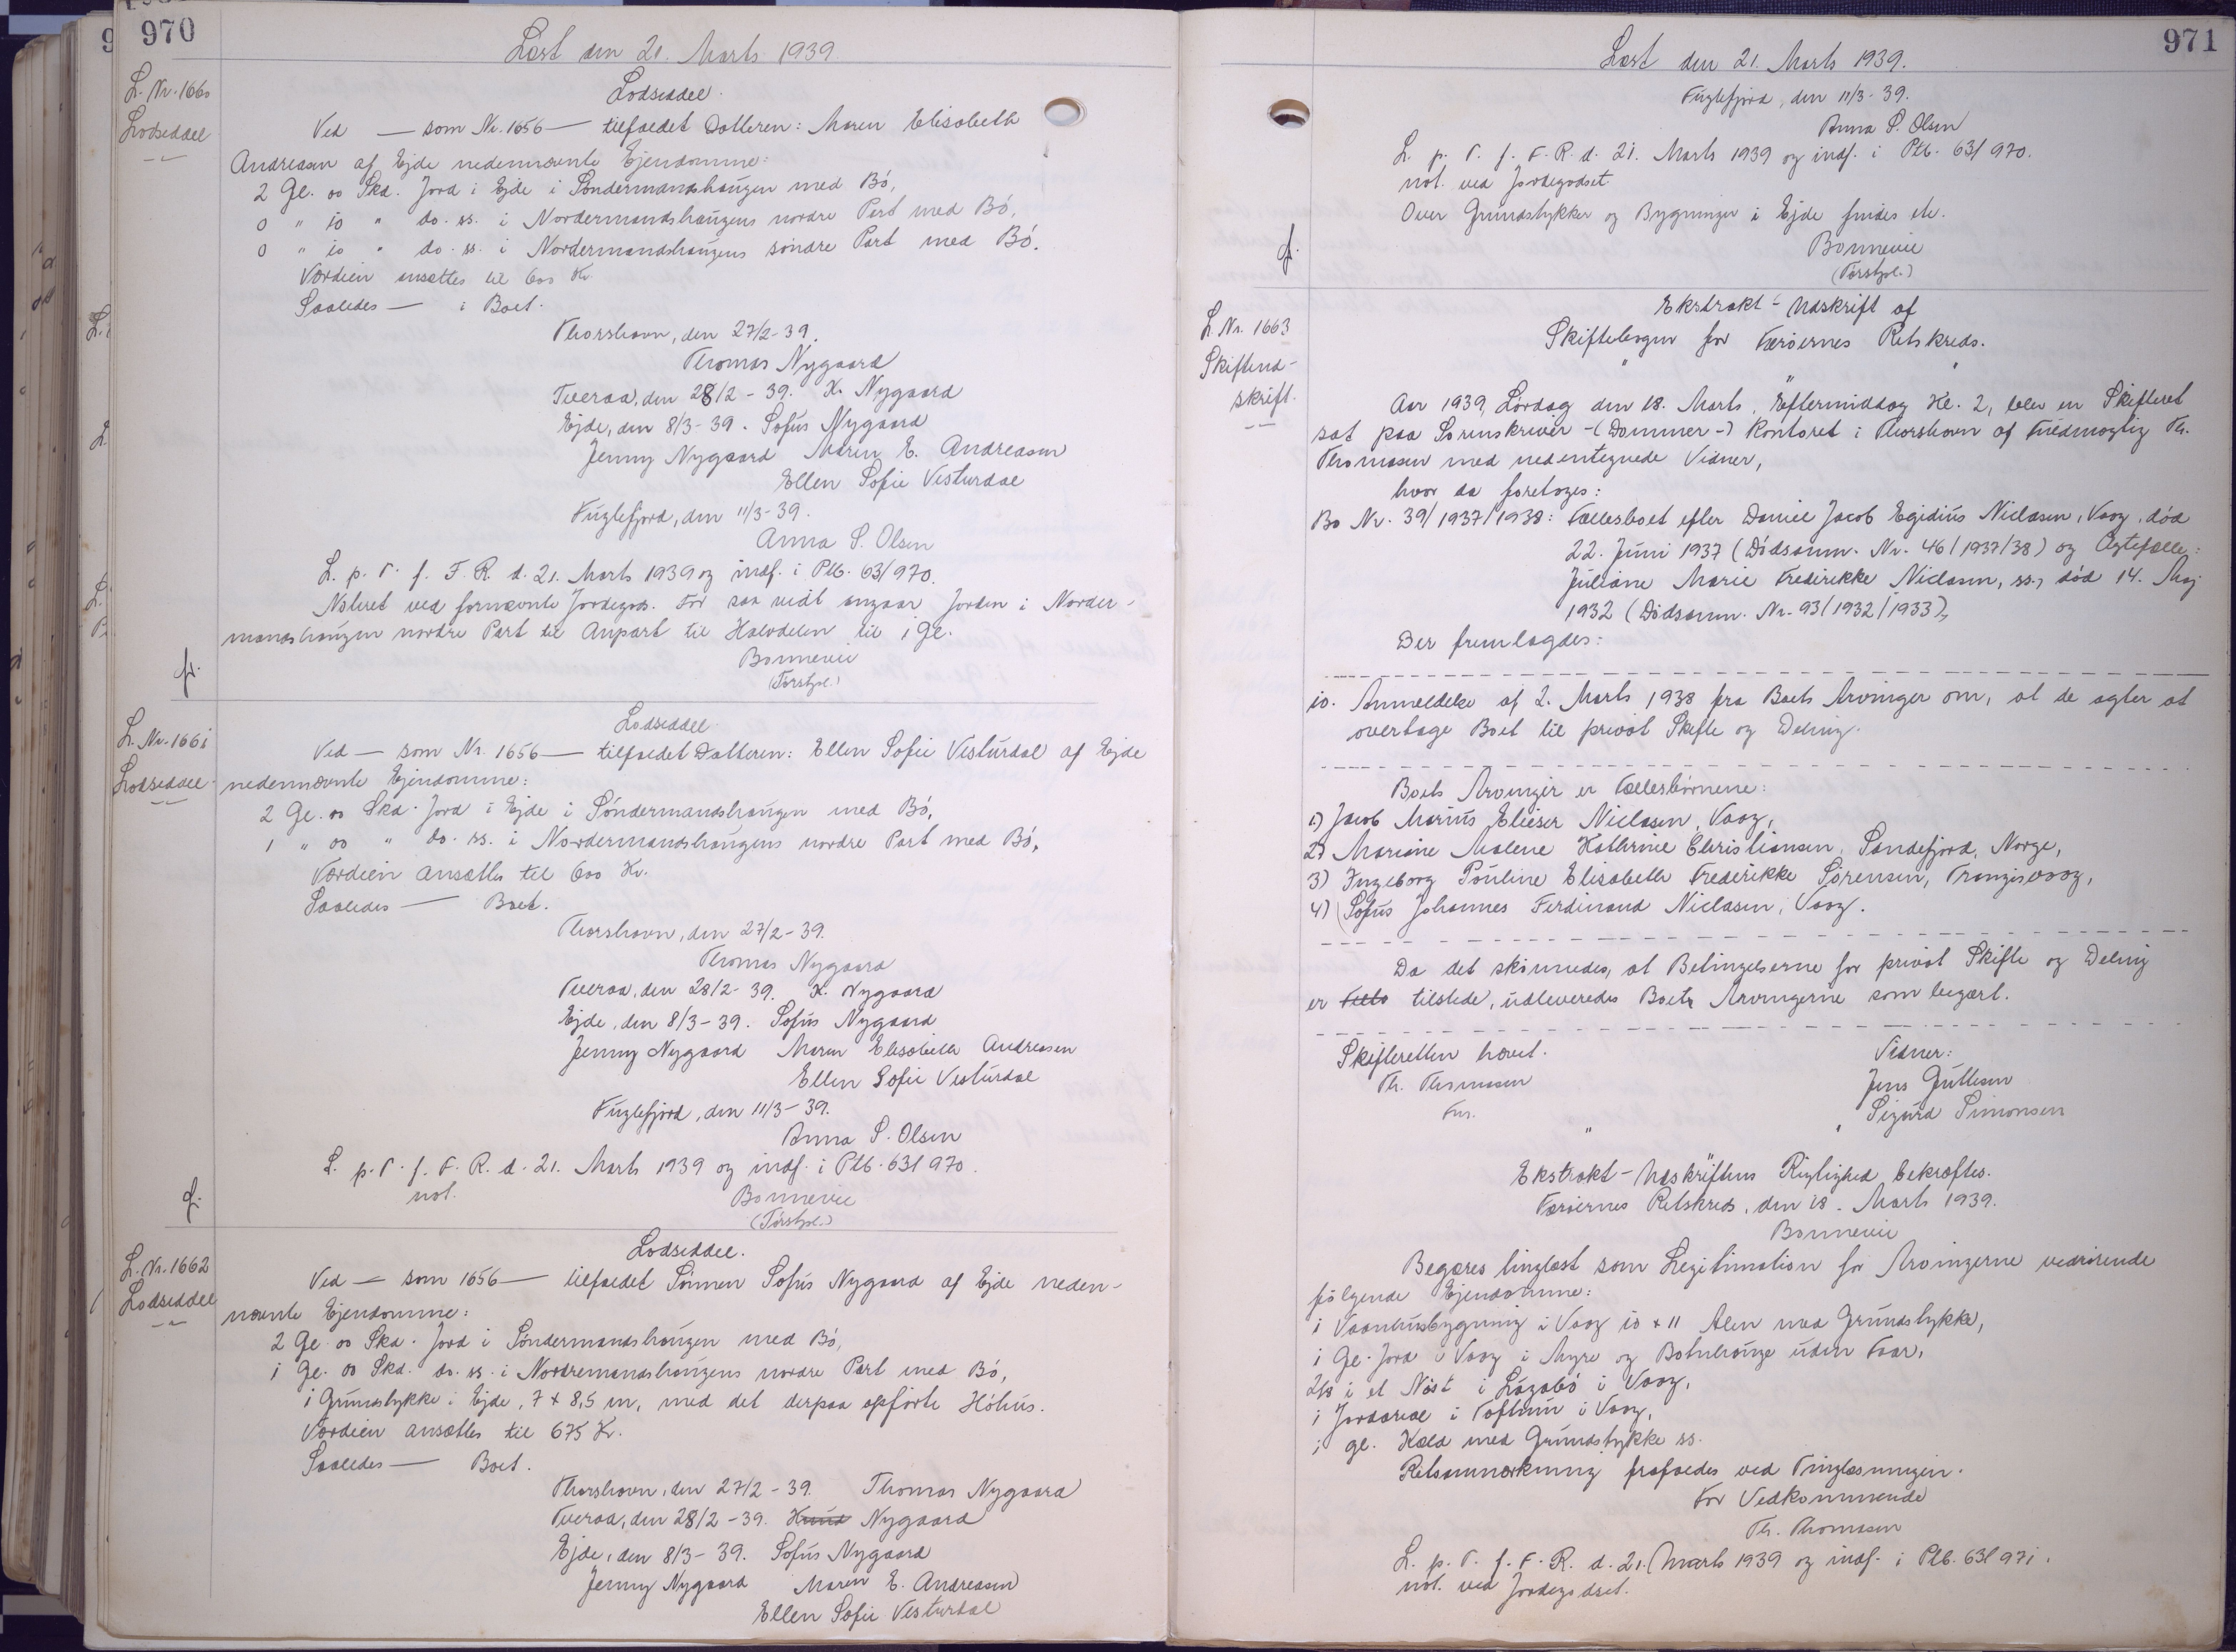 970
Læst den 21. Marts 1939.
L. Nr. 1660
Lodseddel
Lodseddel.
Ved — som Nr. 1656 — tilfaldet Datteren: Maren Elisabeth
Andreasen af Ejde nedennævnte Ejendomme:
2 Gl. 00 Skd. Jord i Ejde i Söndermandshaugen med Bó,
0 " 10 " do. ss. i Nordermandshaugens nordre Part med Bó,
0 " 10 " do. ss. i Nordermandshaugens söndre Part med Bó.
Værdien ansættes til 600 Kr.
Saaledes — i Boet.
Thorshavn, den 27/2-39.
Thomas Nygaard
Tveraa, den 28/2-39. K. Nygaard
Ejde, den 8/3-39. Sofus Nygaard
Jenny Nygaard Maren E. Andreasen
Ellen Sofie Vesturdal
Fuglefjord, den 11/3-39.
Anna S. Olsen
L. p. T. f. F. R. d. 21. Marts 1939 og indf. i Ptb. 63/970.
Noteret ved fornævnte Jordegods. For saa vidt angaar Jorden i Norder-
mandshaugen nordre Part til Anpart til Halvdelen til 1 Gl.
Bonnevie
(Forstpl.)
L. Nr. 1661
Lodseddel
Lodseddel.
Ved — som Nr. 1656 — tilfaldet Datteren: Ellen Sofie Vesturdal af Ejde
nedennævnte Ejendomme:
2 Gl. 00 Skd. Jord i Ejde i Söndermandshaugen med Bó,
1 " 00 " do. ss. i Nordermandshaugens nordre Part med Bó,
Værdien ansættes til 600 Kr.
Saaledes — Boet.
Thorshavn, den 27/2-39.
Thomas Nygaard
Tveraa, den 28/2-39. K. Nygaard
Ejde, den 8/3-39. Sofus Nygaard
Jenny Nygaard Maren Elisabeth Andreasen
Ellen Sofie Vesturdal
Fuglefjord, den 11/3-39.
Anna S. Olsen
L. p. T. f. F. R. d. 21. Marts 1939 og indf. i Ptb. 63/970.
not.
Bonnevie
(Forstpl.)
L. Nr. 1662
Lodseddel
Lodseddel.
Ved — som 1656 — tilfaldet Sönnen Sofus Nygaard af Ejde neden-
nævnte Ejendomme:
2 Gl. 00 Skd. Jord i Söndermandshaugen med Bó,
1 Gl. 00 Skd. do. ss. i Nordremandshaugens nordre Part med Bó,
1 Grundstykke i Ejde, 7 x 8,5 m, med det derpaa opförte Hóhus.
Værdien ansættes til 675 Kr.
Saaledes — Boet.
Thorshavn, den 27/2-39. Thomas Nygaard
Tveraa, den 28/2-39. Knud Nygaard
Ejde, den 8/3-39. Sofus Nygaard
Jenny Nygaard Maren E. Andreasen
Ellen Sofie Vesturdal
971
Læst den 21. Marts 1939.
Fuglefjord, den 11/3-39.
Anna S. Olsen
L. p. T. f. F. R. d. 21. Marts 1939 og indf. i Ptb. 63/970.
not. ved Jordegodset.
Over Grundstykker og Bygninger i Ejde findes etc.
Bonnevie
(Forstpl.)
L. Nr. 1663
Skifteud-
skrift.
Ekstrakt-Udskrift af
Skiftebogen for Færöernes Retskreds.
Aar 1939, Lördag den 18. Marts, Eftermiddag Kl. 2, blev en Skifteret
sat paa Sorenskriver-(Dommer-) Kontoret i Thorshavn af Fuldmægtig Th.
Thomasen med nedentegnede Vidner,
hvor da foretoges:
Bo Nr. 39/1937/1938: Fællesboet efter Daniel Jacob Egidius Niclasen, Vaag, död
22. Juni 1937 (Dödsanm. Nr. 46/1937/38) og Ægtefælle:
Juliane Marie Frederikke Niclasen, ss., död 14. Maj
1932 (Dödsanm. Nr. 93/1932/1933),
Der fremlagdes:
10. Anmeldelse af 2. Marts 1938 fra Boets Arvinger om, at de agter at
overtage Boet til privat Skifte og Deling.
Boets Arvinger er Fællesbörnene:
1) Jacob Marius Elieser Niclasen, Vaag,
2) Mariane Malene Kathrine Christiansen, Sandefjord, Norge,
3) Ingeborg Pouline Elisabeth Frederikke Sörensen, Trangisvaag,
4) Sofus Johannes Ferdinand Niclasen, Vaag.
Da det skönnedes, at Betingelserne for privat Skifte og Deling
er tilstede, udleveredes Boet Arvingerne som begært.
Skifteretten hævet.
Th. Thomasen
Fm.
Vidner:
Jens Gullesen
Sigurd Simonsen
Ekstrakt-Udskriftens Rigtighed bekræftes.
Færöernes Retskreds, den 18. Marts 1939.
Bonnevie
Begæres tinglæst som Legitimation for Arvingerne vedrörende
fölgende Ejendomme:
1 Vaaningsbygning i Vaag 10 x 11 Alen med Grundstykke,
1 Gl. Jord i Vaag i Myre og Botnhauge uden Faar,
2/8 i et Nöst i Lágabó i Vaag,
1 Jordareal i Toftum i Vaag,
1 gl. Hæld med Grundstykke ss.
Retsanmærkning frafaldes ved Tinglæsningen.
For Vedkommende
Th. Thomasen
L. p. T. f. F. R. d. 21. Marts 1939 og indf. i Ptb. 63/971.
not. ved Jordegodset.